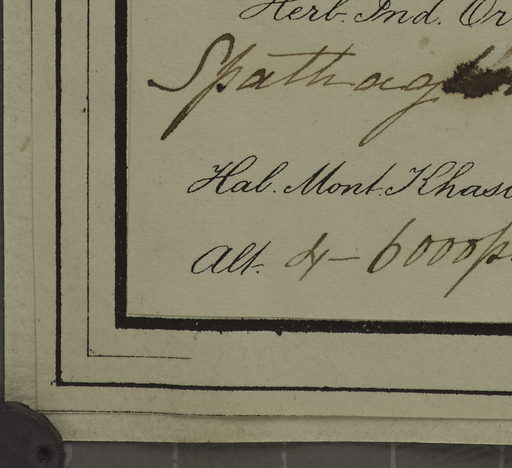 Herb. Ind. Or
Spathog
Hab. Mont. Khasi
Alt. 4–6000 p.